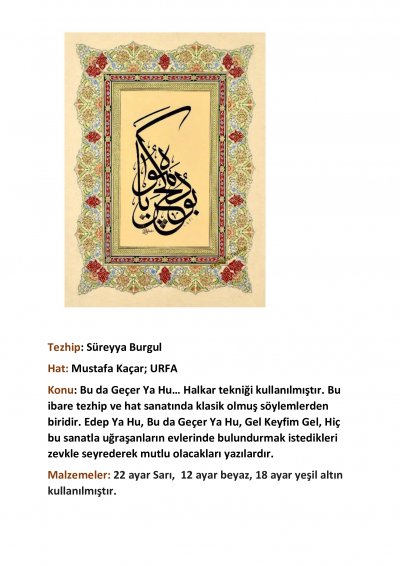 بو ده كچر يا هو
Tezhip: Süreyya Burgul
Hat: Mustafa Kaçar; URFA
Konu: Bu da Geçer Ya Hu… Halkar tekniği kullanılmıştır. Bu
ibare tezhip ve hat sanatında klasik olmuş söylemlerden
biridir. Edep Ya Hu, Bu da Geçer Ya Hu, Gel Keyfim Gel, Hiç
bu sanatla uğraşanların evlerinde bulundurmak istedikleri
zevkle seyrederek mutlu olacakları yazılardır.
Malzemeler: 22 ayar Sarı,  12 ayar beyaz, 18 ayar yeşil altın
kullanılmıştır.